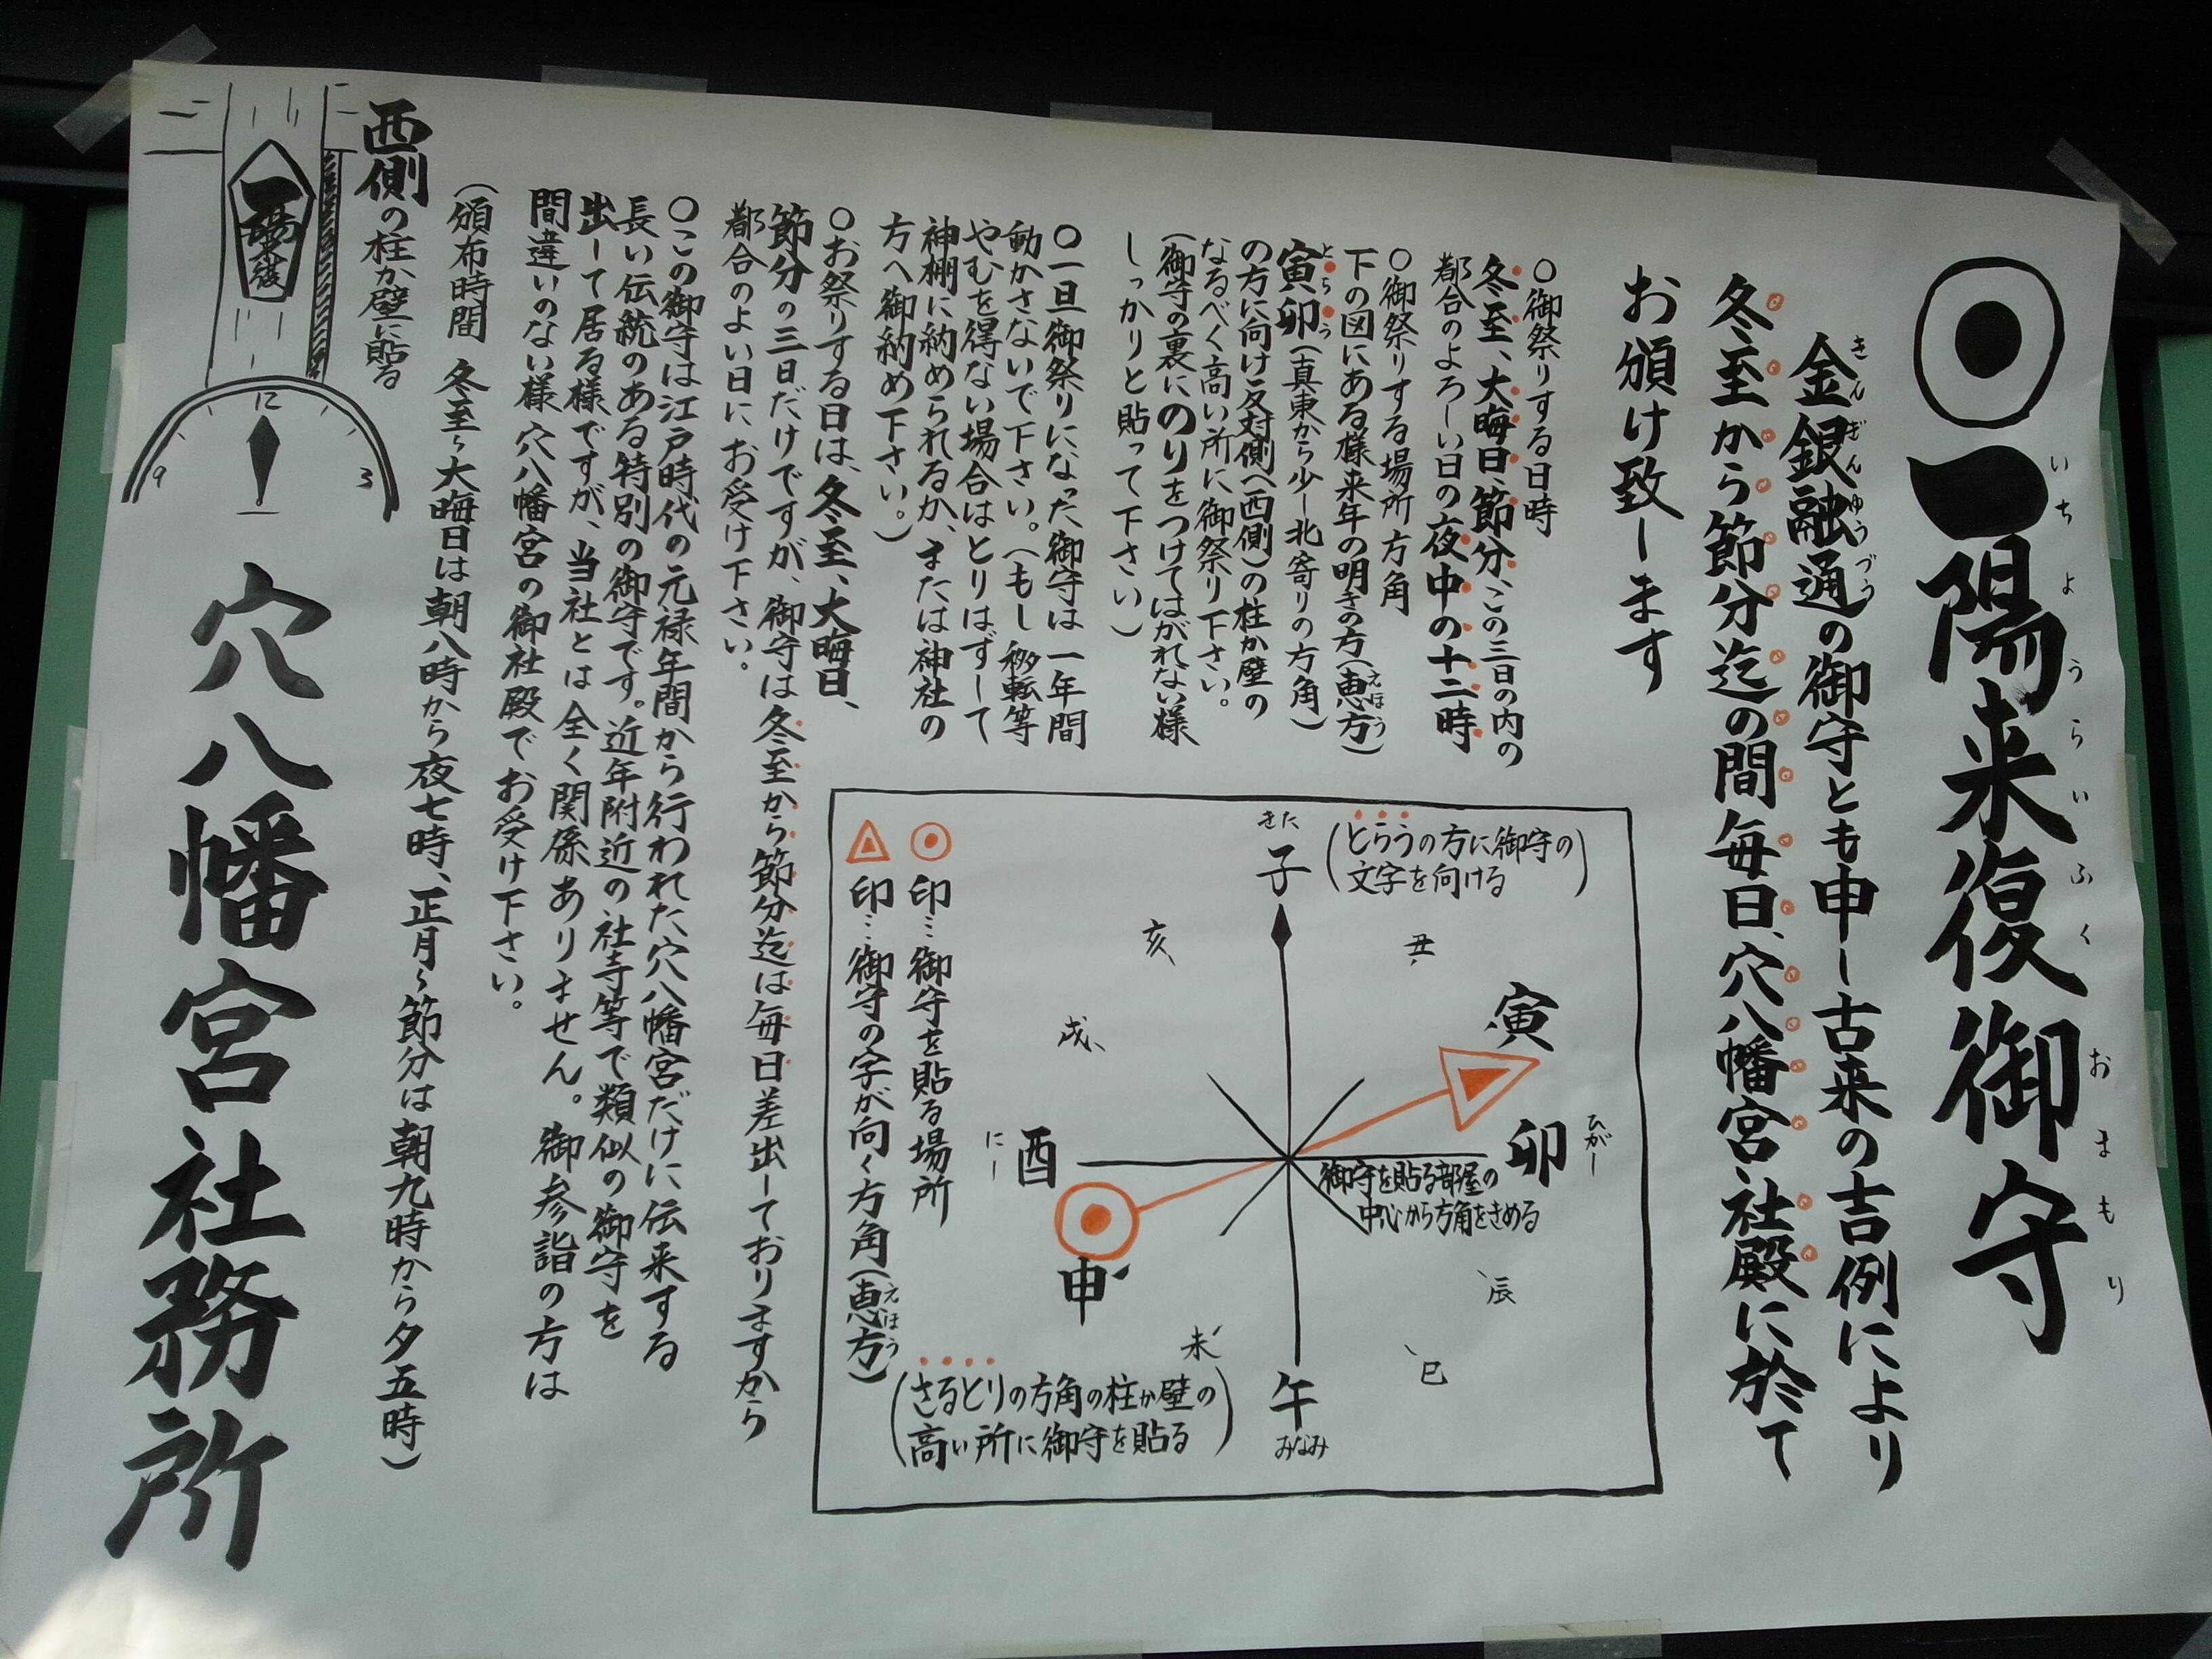 ◉一陽来復御守
いちようらいふくおまもり
金銀融通の御守とも申し古来の吉例により
きんぎんゆうづう
冬至から節分迄の間毎日、穴八幡宮社殿に於て
お頒け致します
○御祭りする日時
冬至、大晦日、節分、この三日の内の
都合のよろしい日の夜中の十二時
○御祭りする場所方角
下の図にある様来年の明きの方(恵方)
えほう
寅卯(真東から少し北寄りの方角)
とらう
の方に向け反対側(西側)の柱か壁の
なるべく高い所に御祭り下さい。
(御守の裏にのりをつけてはがれない様
しっかりと貼って下さい)
○一旦御祭りになった御守は一年間
動かさないで下さい。(もし移転等
やむを得ない場合はとりはずして
神棚に納められるか、または神社の
方へ御納め下さい。)
○お祭りする日は、冬至、大晦日、
節分の三日だけですが、御守は冬至から節分迄は毎日差出しておりますから
都合のよい日にお受け下さい。
○この御守は江戸時代の元禄年間から行われた穴八幡宮だけに伝来する
長い伝統のある特別の御守です。近年附近の社寺等で類似の御守を
出して居る様ですが、当社とは全く関係ありません。御参詣の方は
間違いのない様穴八幡宮の御社殿でお受け下さい。
(頒布時間 冬至〜大晦日は朝八時から夜七時、正月〜節分は朝九時から夕五時)
西側の柱か壁に貼る
一陽来復
12
9
3
穴八幡宮社務所
きた
子
(とらうの方に御守の
文字を向ける)
丑
寅
卯
ひがし
辰
巳
午
みなみ
未
申
酉
にし
戌
亥
御守を貼る部屋の
中心から方角をきめる
印…御守を貼る場所
印…御守の字が向く方角(恵方)
えほう
(さるとりの方角の柱か壁の
高い所に御守を貼る)